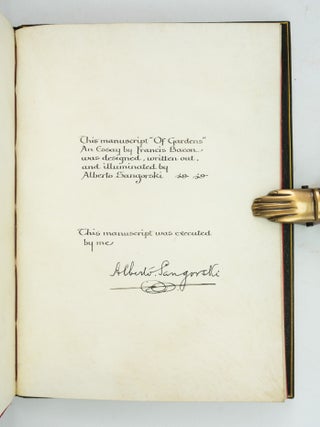 This manuscript "Of Gardens"
An Essay by Francis Bacon
was designed, written out,
and illuminated by
Alberto Sangorski
This manuscript was executed
by me
Alberto Sangorski